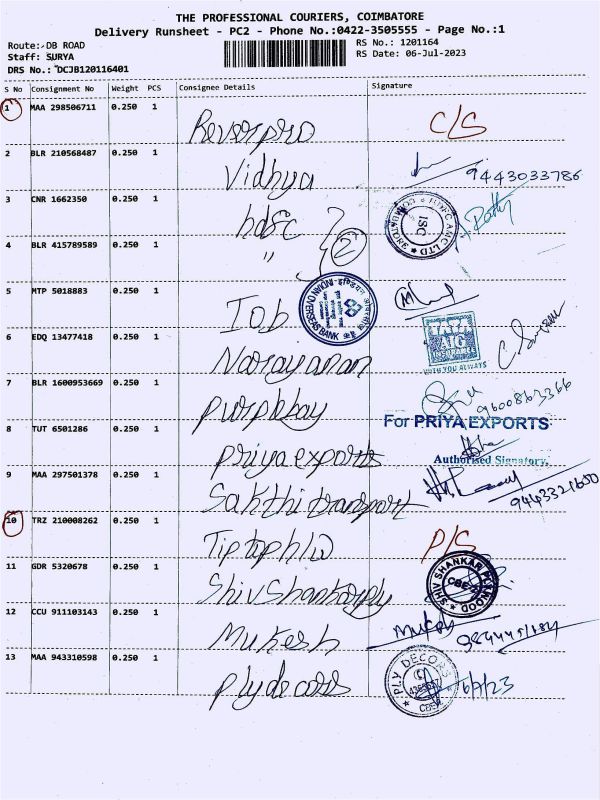 THE PROFESSIONAL COURIERS, COIMBATORE
Delivery Runsheet - PC2 - Phone No.:0422-3505555 - Page No.:1
Route: DB ROAD
RS No.: 1201164
Staff: SURYA
RS Date: 06-Jul-2023
DRS No.: DCJB120116401
S No Consignment No Weight PCS Consignee Details Signature
1 MAA 298506711 0.250 1 C/S
2 BLR 210568487 0.250 1 Vidhya 9443033786
3 CNR 1662350 0.250 1 hdfc
4 BLR 415789589 0.250 1 " 2
ISC
5 MTP 5018883 0.250 1 Iob
INDIAN OVERSEAS BANK
6 EDQ 13477418 0.250 1 Narayanan
TATA
AIG
INSURANCE
WITH YOU ALWAYS
7 BLR 1600953669 0.250 1
For PRIYA EXPORTS
8 TUT 6501286 0.250 1 priya exports
Authorised Signatory.
9 MAA 297501378 0.250 1 Sakthi transport
10 TRZ 210008262 0.250 1 P/S
11 GDR 5320678 0.250 1 Shiv Shankar ply
SHIV SHANKAR PLYWOOD
12 CCU 911103143 0.250 1 Mukesh
13 MAA 943310598 0.250 1 Ply decors 6/7/23
PLY DECORS